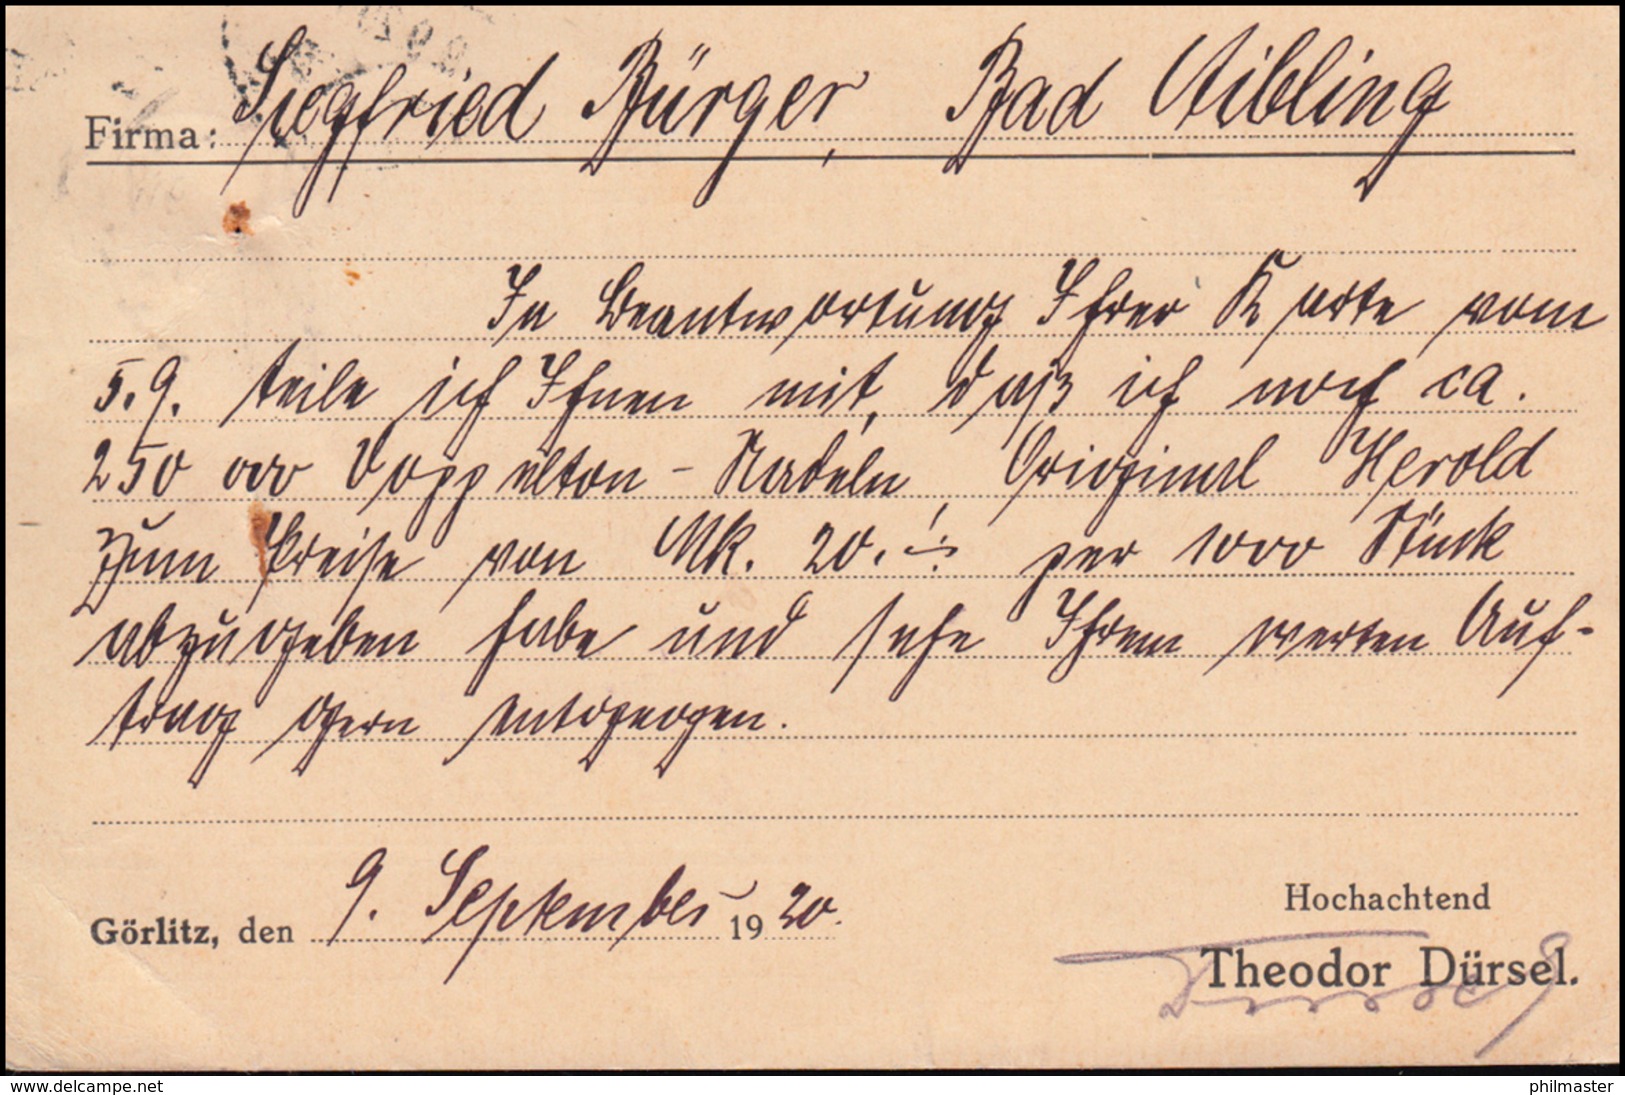 Firma: Siegfried Bürger, Bad Aibling
In Beantwortung Ihrer Karte vom
5.9. teile ich Ihnen mit, daß ich noch ca.
250 000 Doppelton-Nadeln, Original Herold
zum Preise von Mk. 20.-- per 1000 Stück
abzugeben habe und sehe Ihrem werten Auf-
trag gern entgegen.
Görlitz, den 9. September 1920.
Hochachtend
Theodor Dürsel.
www.delcampe.net
philmaster